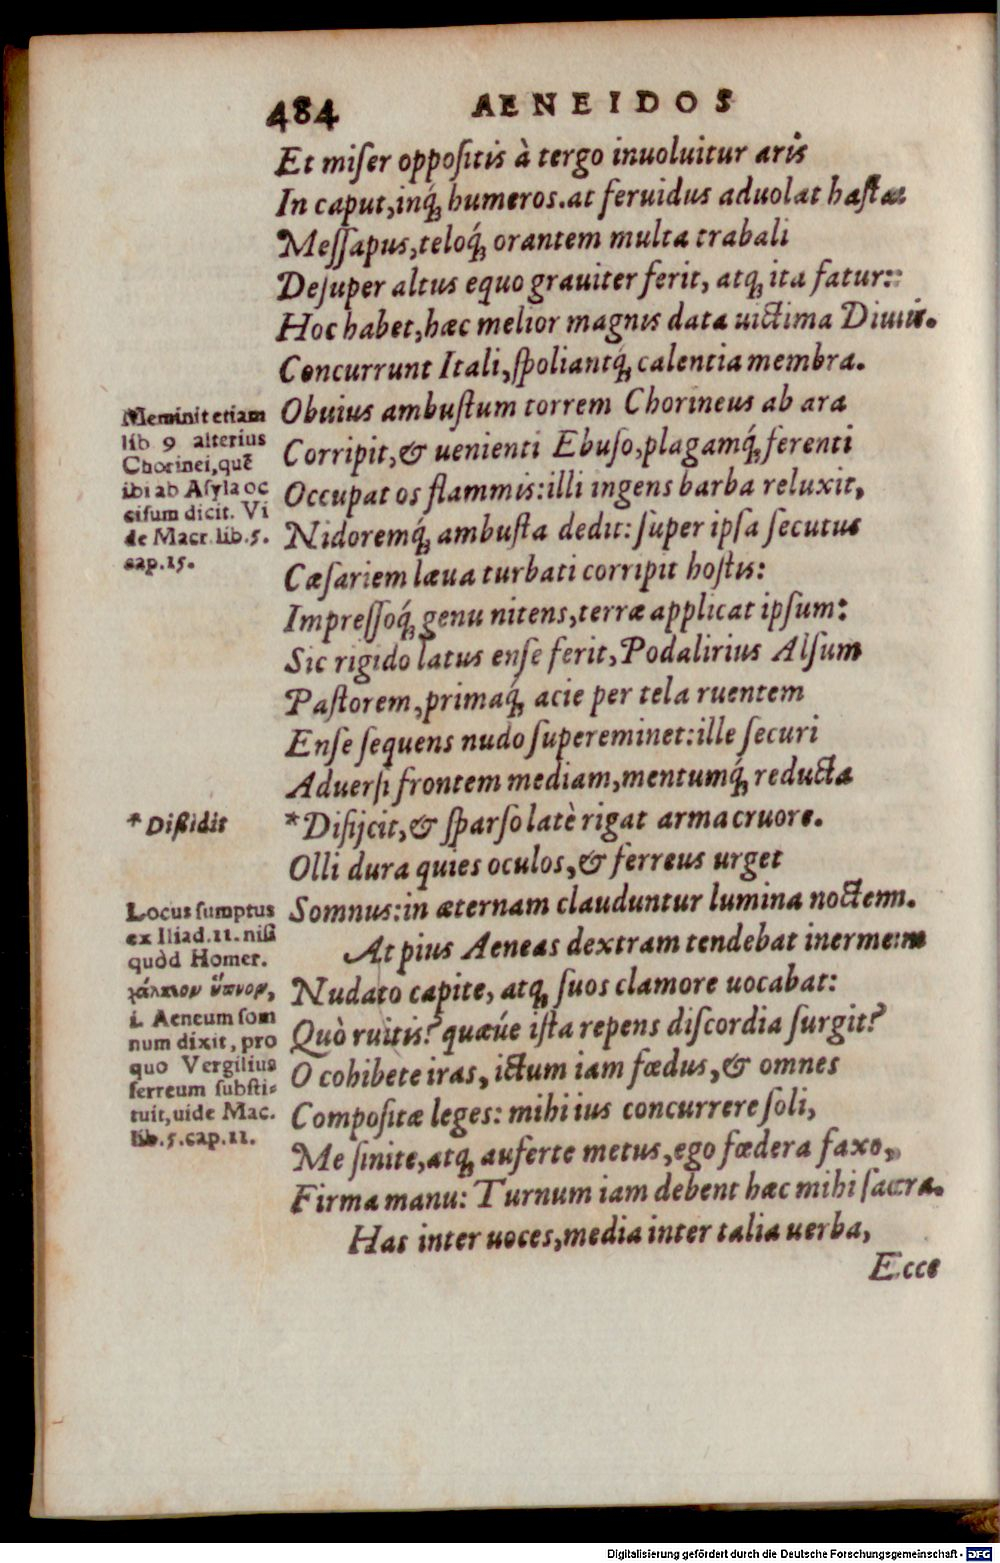 484 AENEIDOS
Et miſer oppoſitis à tergo inuoluitur aris
In caput,inq́; humeros.at feruidus aduolat haſta
Meſſapus,teloq́; orantem multa trabali
Deſuper altus equo grauiter ferit, atq; ita fatur:
Hoc habet,hæc melior magnis data uictima Diuis.
Concurrunt Itali,ſpoliantq́; calentia membra.
Obuius ambuſtum torrem Chorineus ab ara
Corripit,& uenienti Ebuſo,plagamq́; ferenti
Occupat os flammis:illi ingens barba reluxit,
Nidoremq́; ambuſta dedit: ſuper ipſa ſecutus
Cæſariem læua turbati corripit hoſtis:
Impreſſoq́; genu nitens,terræ applicat ipſum:
Sic rigido latus enſe ferit,Podalirius Alſum
Paſtorem,primaq́; acie per tela ruentem
Enſe ſequens nudo ſupereminet:ille ſecuri
Aduerſi frontem mediam,mentumq́; reducta
*Diſijcit,& ſparſo latè rigat arma cruore.
Olli dura quies oculos,& ferreus urget
Somnus:in æternam clauduntur lumina noctem.
At pius Aeneas dextram tendebat inermem
Nudato capite, atq; ſuos clamore uocabat:
Quò ruitis? quæúe iſta repens diſcordia ſurgit?
O cohibete iras, ictum iam fœdus,& omnes
Compoſitæ leges: mihi ius concurrere ſoli,
Me ſinite,atq; auferte metus,ego fœdera faxo,
Firma manu: Turnum iam debent hæc mihi ſacra.
Has inter uoces,media inter talia uerba,
Ecce
Meminit etiam
lib 9 alterius
Chorinei,quē
ibi ab Aſyla oc
ciſum dicit. Vi
de Macr. lib.5.
cap.15.
*Diſſidit
Locus ſumptus
ex Iliad.11.niſi
quòd Homer.
χάλκεον ὕπνον,
i. Aeneum ſom
num dixit, pro
quo Vergilius
ferreum ſubſti-
tuit,uide Mac.
lib.5.cap.11.
Digitalisierung gefördert durch die Deutsche Forschungsgemeinschaft - DFG